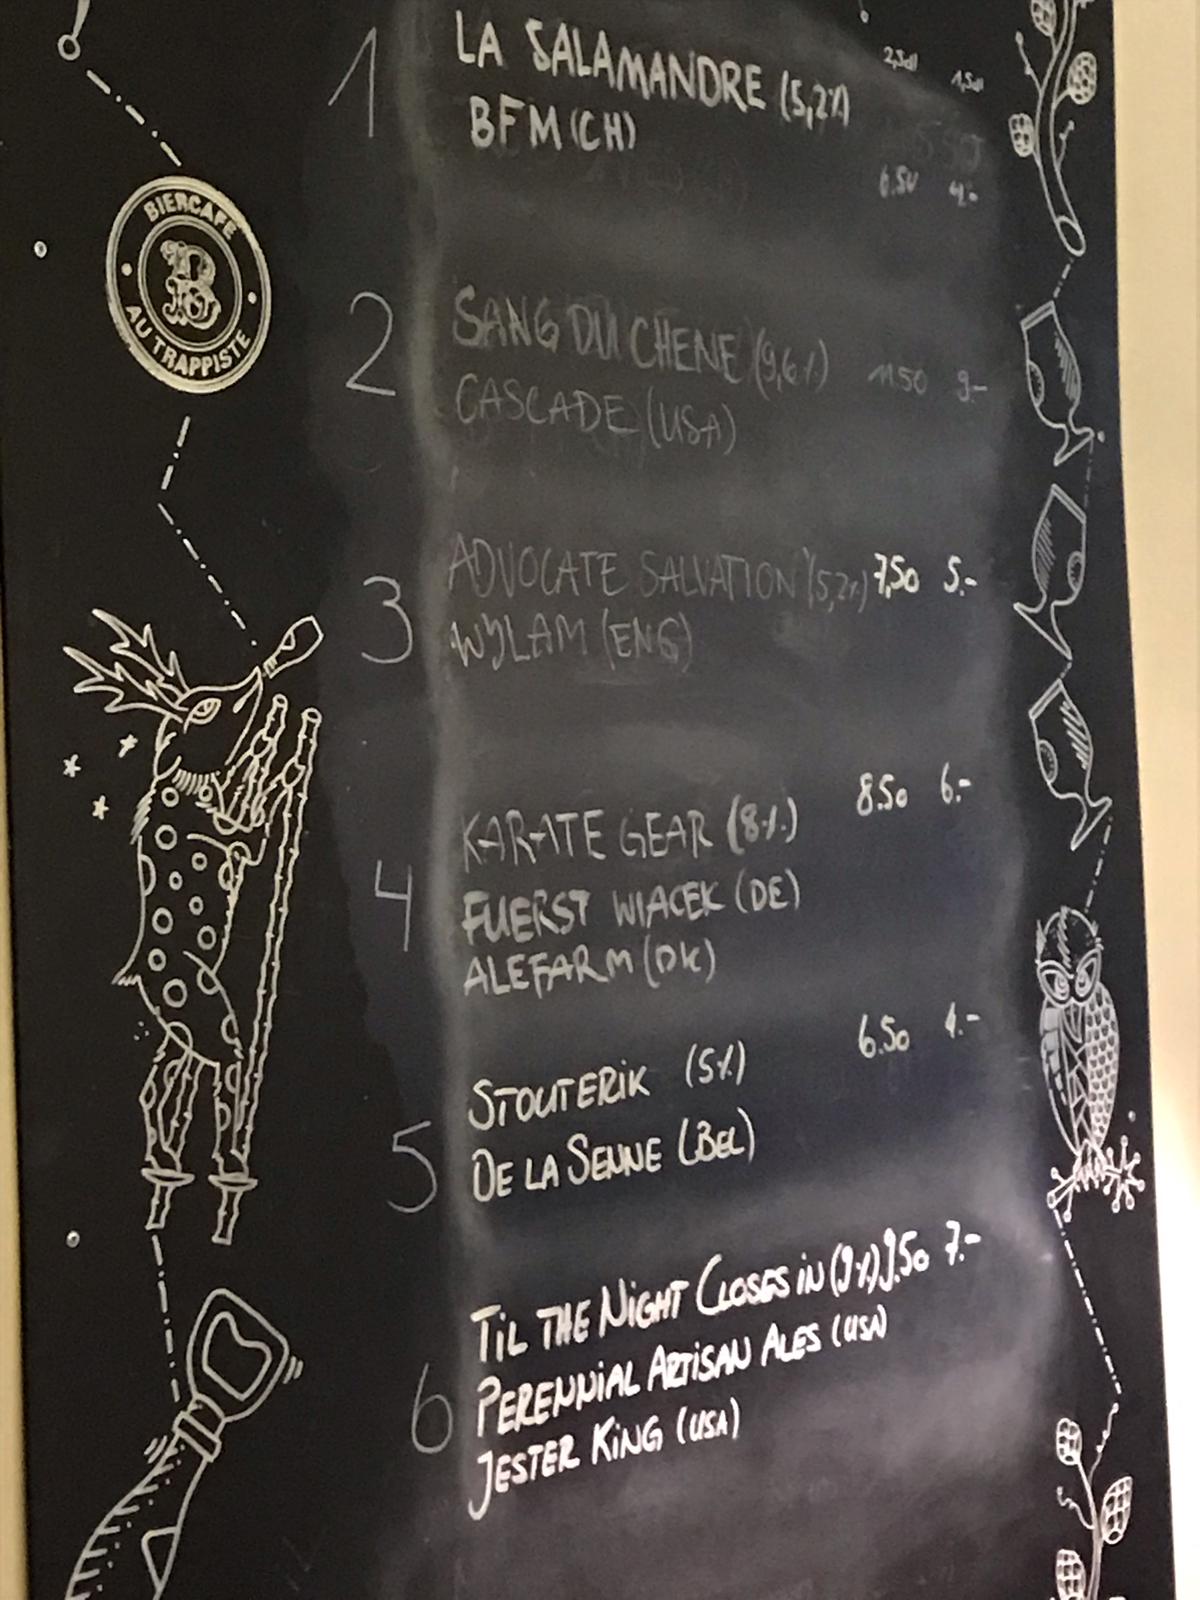 2,5dl 1,5dl
1 LA SALAMANDRE (5,2%)
BFM (CH)
6.50 4.-
BIERCAFE
B
AU TRAPPISTE
2 SANG DU CHENE (9,6%) 11.50 9.-
CASCADE (USA)
3 ADVOCATE SALVATION (5,2%) 7,50 5.-
WYLAM (ENG)
8.50 6.-
4 KARATE GEAR (8%)
FUERST WIACEK (DE)
ALEFARM (DK)
6.50 4.-
5 STOUTERIK (5%)
DE LA SENNE (BEL)
6 TIL THE NIGHT CLOSES IN (9%) 9.50 7.-
PERENNIAL ARTISAN ALES (USA)
JESTER KING (USA)